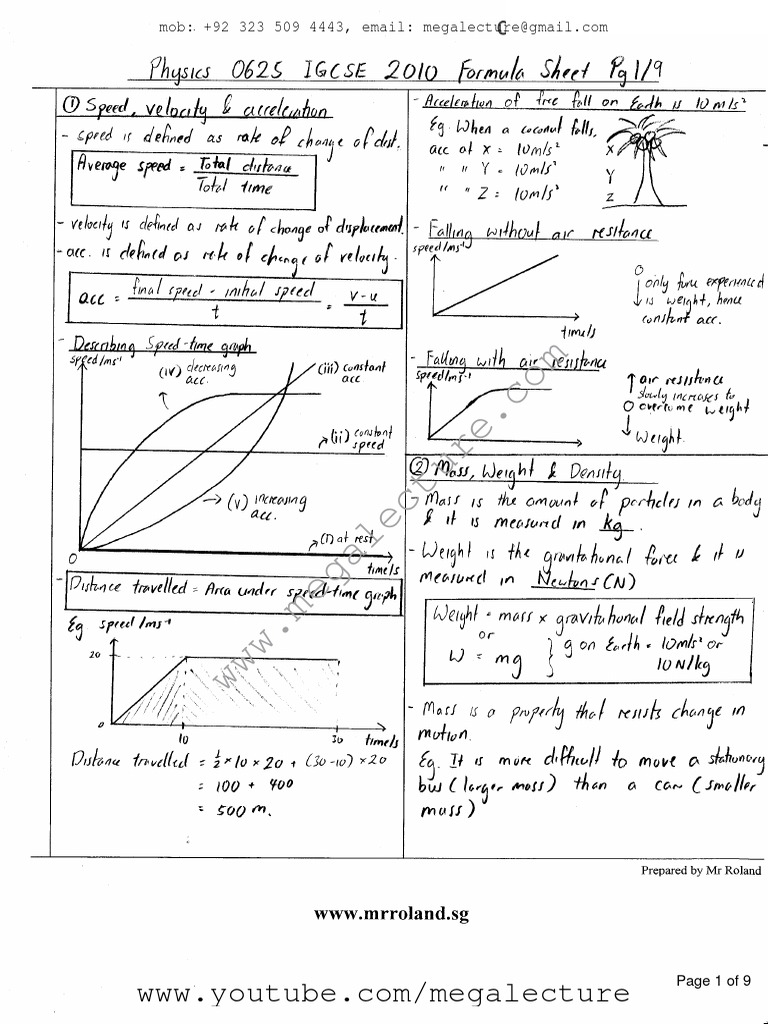 mob: +92 323 509 4443, email: megalecture@gmail.com
Physics 0625 IGCSE 2010 Formula Sheet Pg 1/9
① Speed, velocity & acceleration
- speed is defined as rate of change of dist.
Average speed = Total distance
Total time
- velocity is defined as rate of change of displacement.
- acc. is defined as rate of change of velocity.
acc = final speed - initial speed = v-u
t t
- Describing Speed-time graph
speed/ms⁻¹
(iv) decreasing
acc.
(iii) constant
acc
(ii) constant
speed
(v) increasing
acc.
(i) at rest
0
time/s
- Distance travelled = Area under speed-time graph
Eg speed/ms⁻¹
20
0
10 30 time/s
Distance travelled = ½ × 10 × 20 + (30-10) × 20
= 100 + 400
= 500 m.
- Acceleration of free fall on Earth is 10 m/s²
Eg. When a coconut falls,
acc at X = 10m/s²
" " Y = 10m/s²
" " Z = 10m/s²
X
Y
Z
- Falling without air resitance
speed/ms⁻¹
time/s
only force experienced
is weight, hence
constant acc.
- Falling with air resistance
speed/ms⁻¹
air resistance
slowly increases to
overcome weight
Weight.
② Mass, Weight & Density
- Mass is the amount of particles in a body
& it is measured in kg.
- Weight is the gravitational force & it is
measured in Newtons (N)
Weight = mass x gravitational field strength
or
W = mg } g on Earth = 10m/s² or
10 N/kg
- Mass is a property that resists change in
motion.
Eg. It is more difficult to move a stationary
bus (larger mass) than a car (smaller
mass)
www.megalecture.com
Prepared by Mr Roland
www.mrroland.sg
Page 1 of 9
www.youtube.com/megalecture